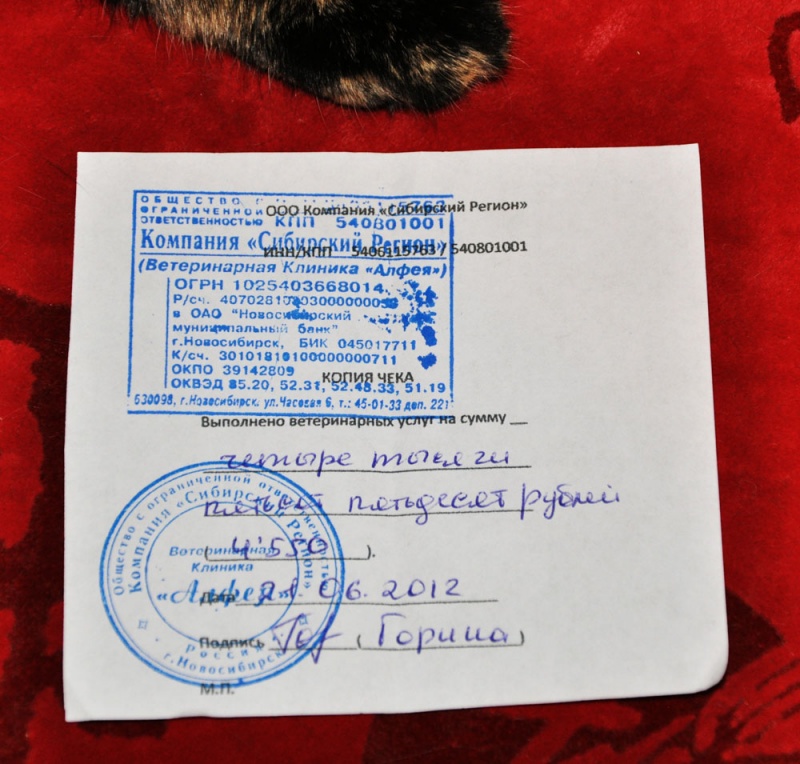 ОБЩЕСТВО С
ОГРАНИЧЕННОЙ
ОТВЕТСТВЕННОСТЬЮ КПП 540801001
Компания «Сибирский Регион»
(Ветеринарная Клиника «Алфея»)
ОГРН 1025403668014
Р/сч.
в ОАО "Новосибирский
муниципальный банк"
г.Новосибирск, БИК 045017711
К/сч. 30101810100000000711
ОКПО 39142809
ОКВЭД 85.20, 52.31, 52.48.33, 51.19
630098, г.Новосибирск, ул.Часовая 6, т.: 45-01-33 доп. 221
ООО Компания «Сибирский Регион»
ИНН/КПП 5406115763 / 540801001
КОПИЯ ЧЕКА
Выполнено ветеринарных услуг на сумму __
четыре тысячи
пятьсот пятьдесят рублей
( 4'550 ).
Дата 21.06.2012
Подпись ( Горина )
М.П.
Общество с ограниченной ответственностью
Компания «Сибирский Регион»
Ветеринарная
Клиника
«Алфея»
Россия
г.Новосибирск